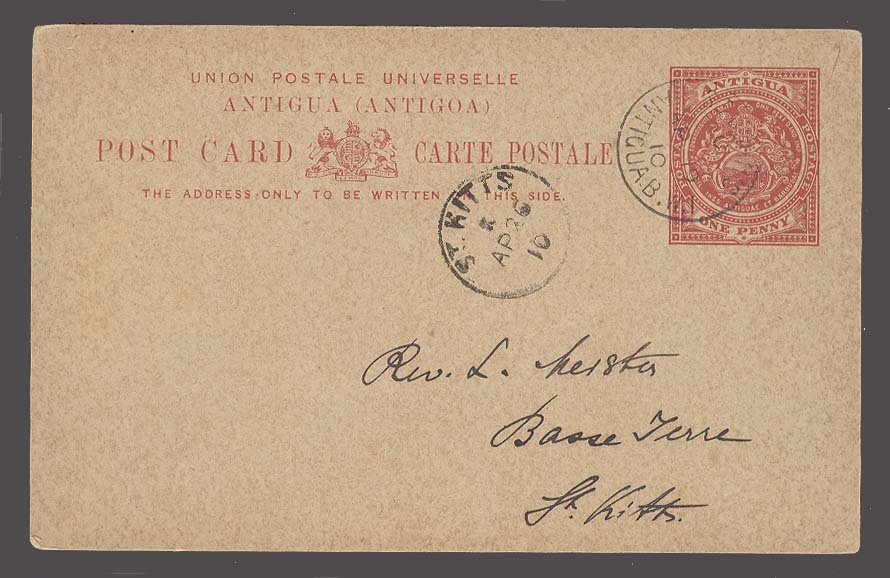 UNION POSTALE UNIVERSELLE
ANTIGUA (ANTIGOA)
POST CARD CARTE POSTALE
THE ADDRESS ONLY TO BE WRITTEN THIS SIDE.
ANTIGUA
POSTAGE
ONE PENNY
ANTIGUA B.W.I.
10
ST. KITTS
AP 26
10
Rev. L. Meister
Basse Terre
St. Kitts.